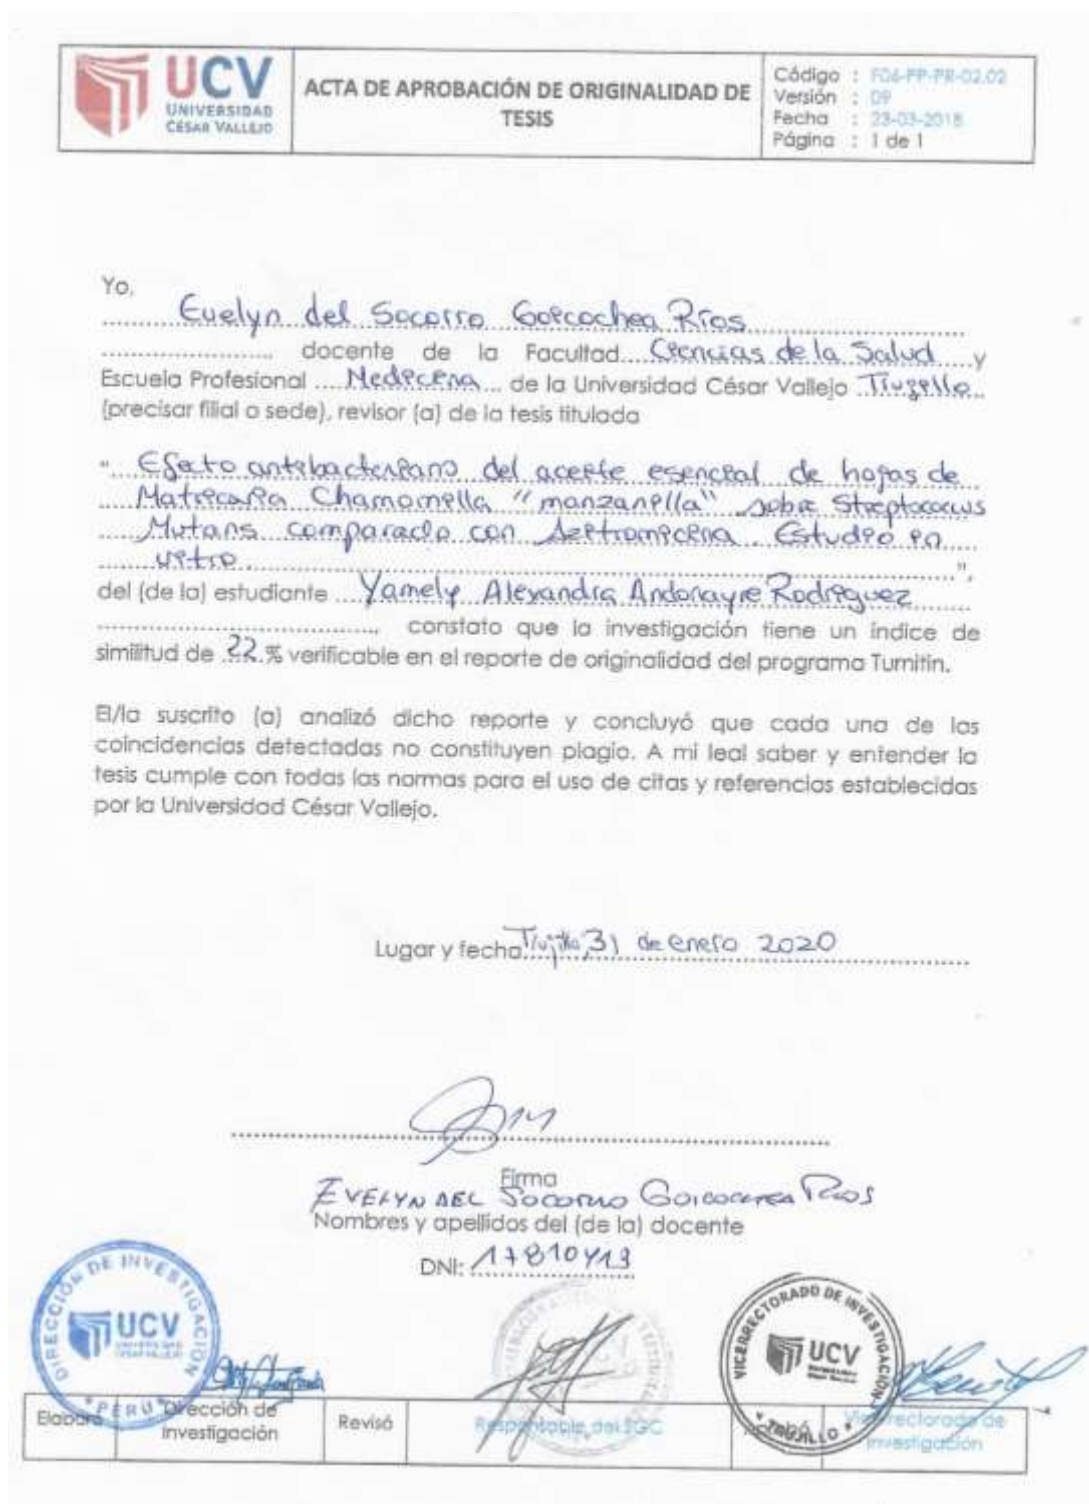 UCV
UNIVERSIDAD
CÉSAR VALLEJO
ACTA DE APROBACIÓN DE ORIGINALIDAD DE
TESIS
Código : F06-PP-PR-02.02
Versión : 09
Fecha : 23-03-2018
Página : 1 de 1
Yo,
Evelyn del Socorro Goicochea Ríos
docente de la Facultad Ciencias de la Salud y
Escuela Profesional Medicina de la Universidad César Vallejo Trujillo
(precisar filial o sede), revisor (a) de la tesis titulada
" Efecto antibacteriano del aceite esencial de hojas de
Matricaria Chamomilla "manzanilla" sobre Streptococcus
Mutans comparado con Azitromicina. Estudio in
vitro ",
del (de la) estudiante Yamely Alexandra Andonayre Rodríguez
, constato que la investigación tiene un índice de
similitud de 22 % verificable en el reporte de originalidad del programa Turnitin.
El/la suscrito (a) analizó dicho reporte y concluyó que cada una de las
coincidencias detectadas no constituyen plagio. A mi leal saber y entender la
tesis cumple con todas las normas para el uso de citas y referencias establecidas
por la Universidad César Vallejo.
Lugar y fecha Trujillo, 31 de enero 2020
Firma
EVELYN DEL SOCORRO GOICOCHEA RIOS
Nombres y apellidos del (de la) docente
DNI: 17810413
DIRECCIÓN DE INVESTIGACIÓN
UCV
UNIVERSIDAD
CÉSAR VALLEJO
* PERÚ *
UCV
VICERRECTORADO DE INVESTIGACIÓN
UCV
* TRUJILLO *
Elaboró
Dirección de
Investigación
Revisó
Responsable del SGC
Vicerrectorado de
Investigación